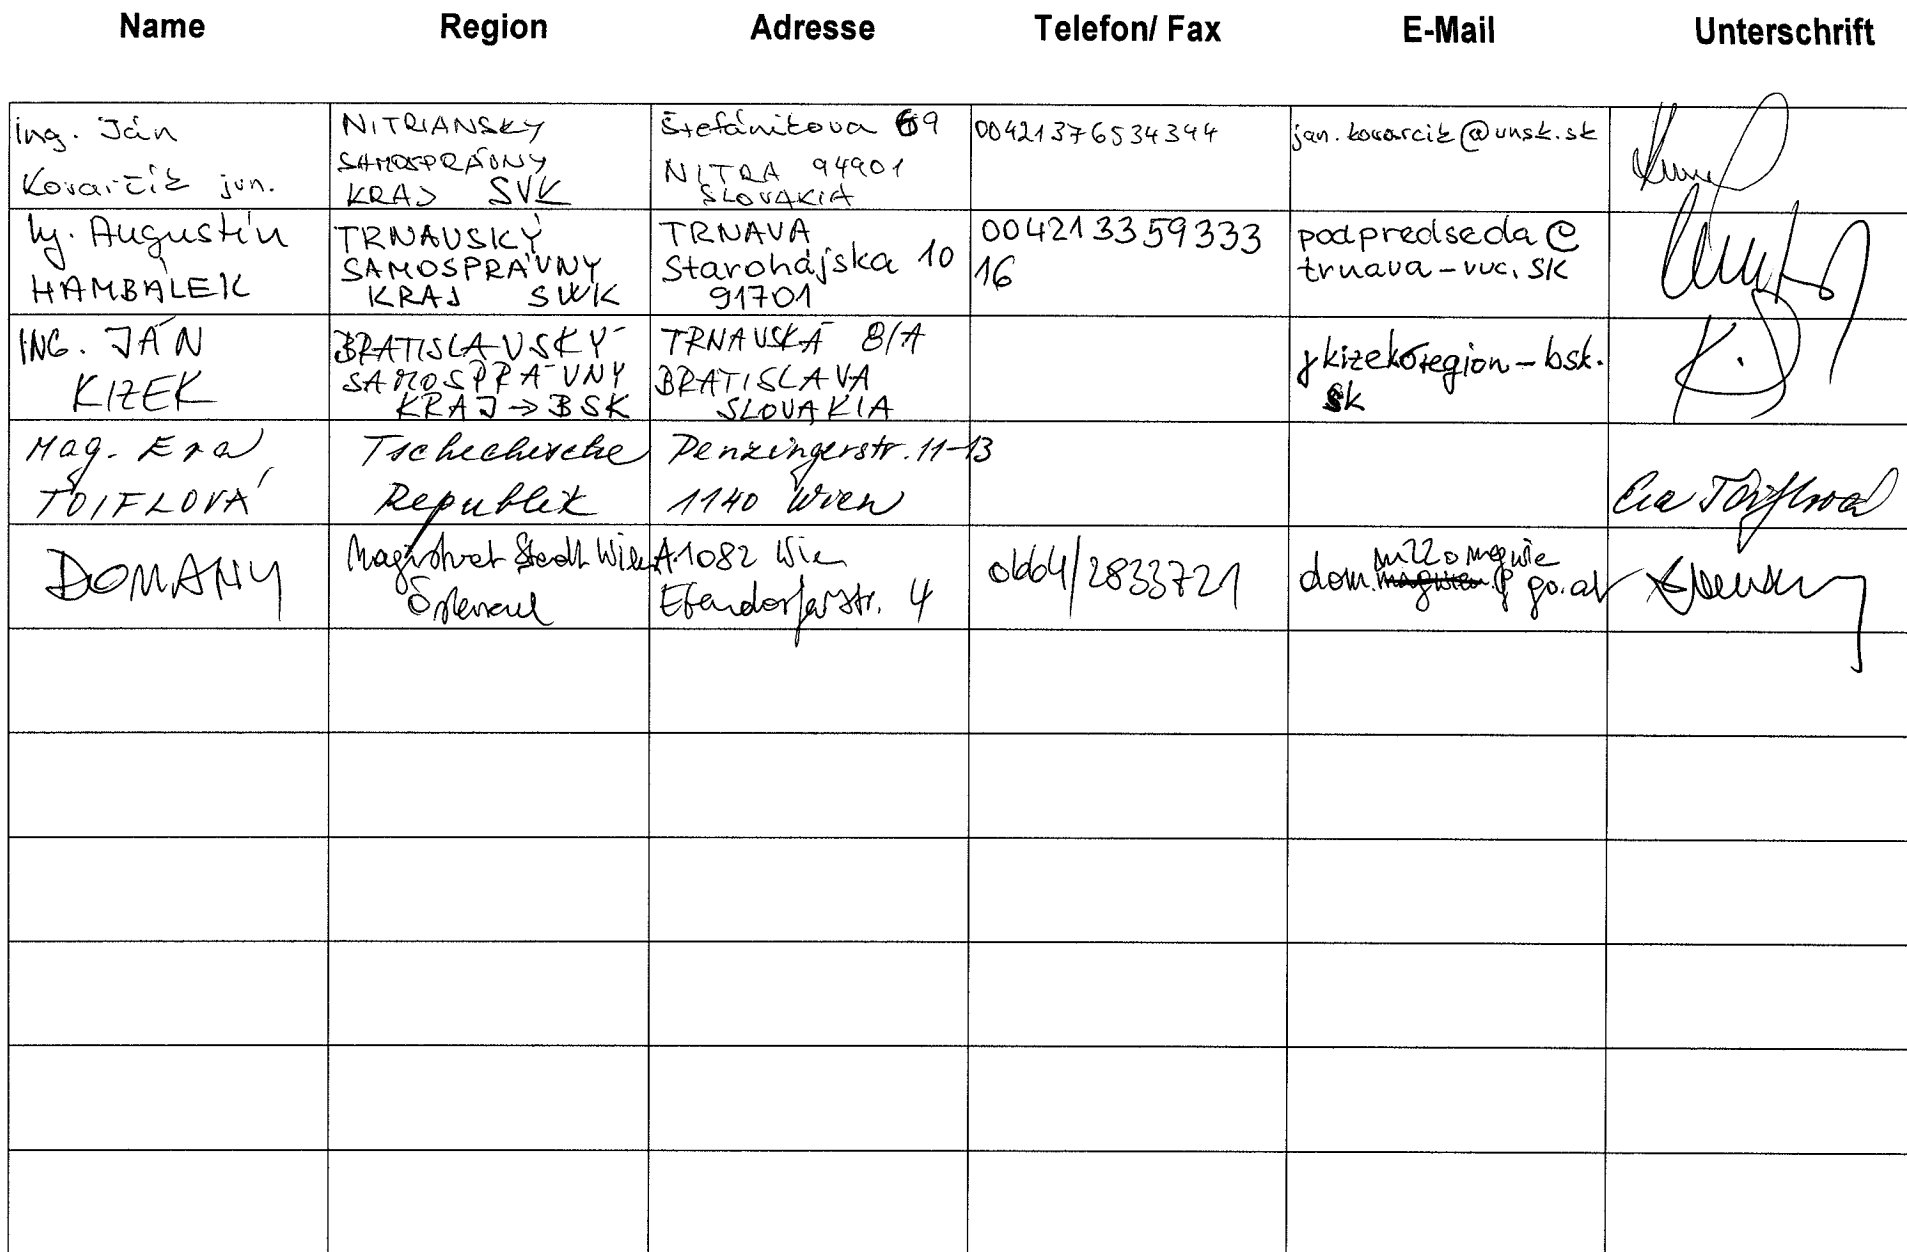 Name Region Adresse Telefon/ Fax E-Mail Unterschrift
Ing. Ján
Kovarčík jun.
NITRIANSKY
SAMOSPRÁVNY
KRAJ SVK
Štefánikova 69
NITRA 94901
SLOVAKIA
00421376534344
jan.kovarcik@unsk.sk
Ing. Augustín
HAMBÁLEK
TRNAVSKÝ
SAMOSPRÁVNY
KRAJ SVK
TRNAVA
Starohájska 10
91701
004213359333
16
podpredseda@
trnava-vuc.sk
ING. JÁN
KIZEK
BRATISLAVSKÝ
SAMOSPRÁVNY
KRAJ → BSK
TRNAVSKÁ 8/A
BRATISLAVA
SLOVAKIA
jkizek@region-bsk.
sk
Mag. Eva
TOIFLOVÁ
Tschechische
Republik
Penzingerstr. 11-13
1140 Wien
Eva Toiflová
DOMANY
Magistrat Stadt Wien
Österreich
A-1082 Wien
4
0664/2833721
dom. gv.at